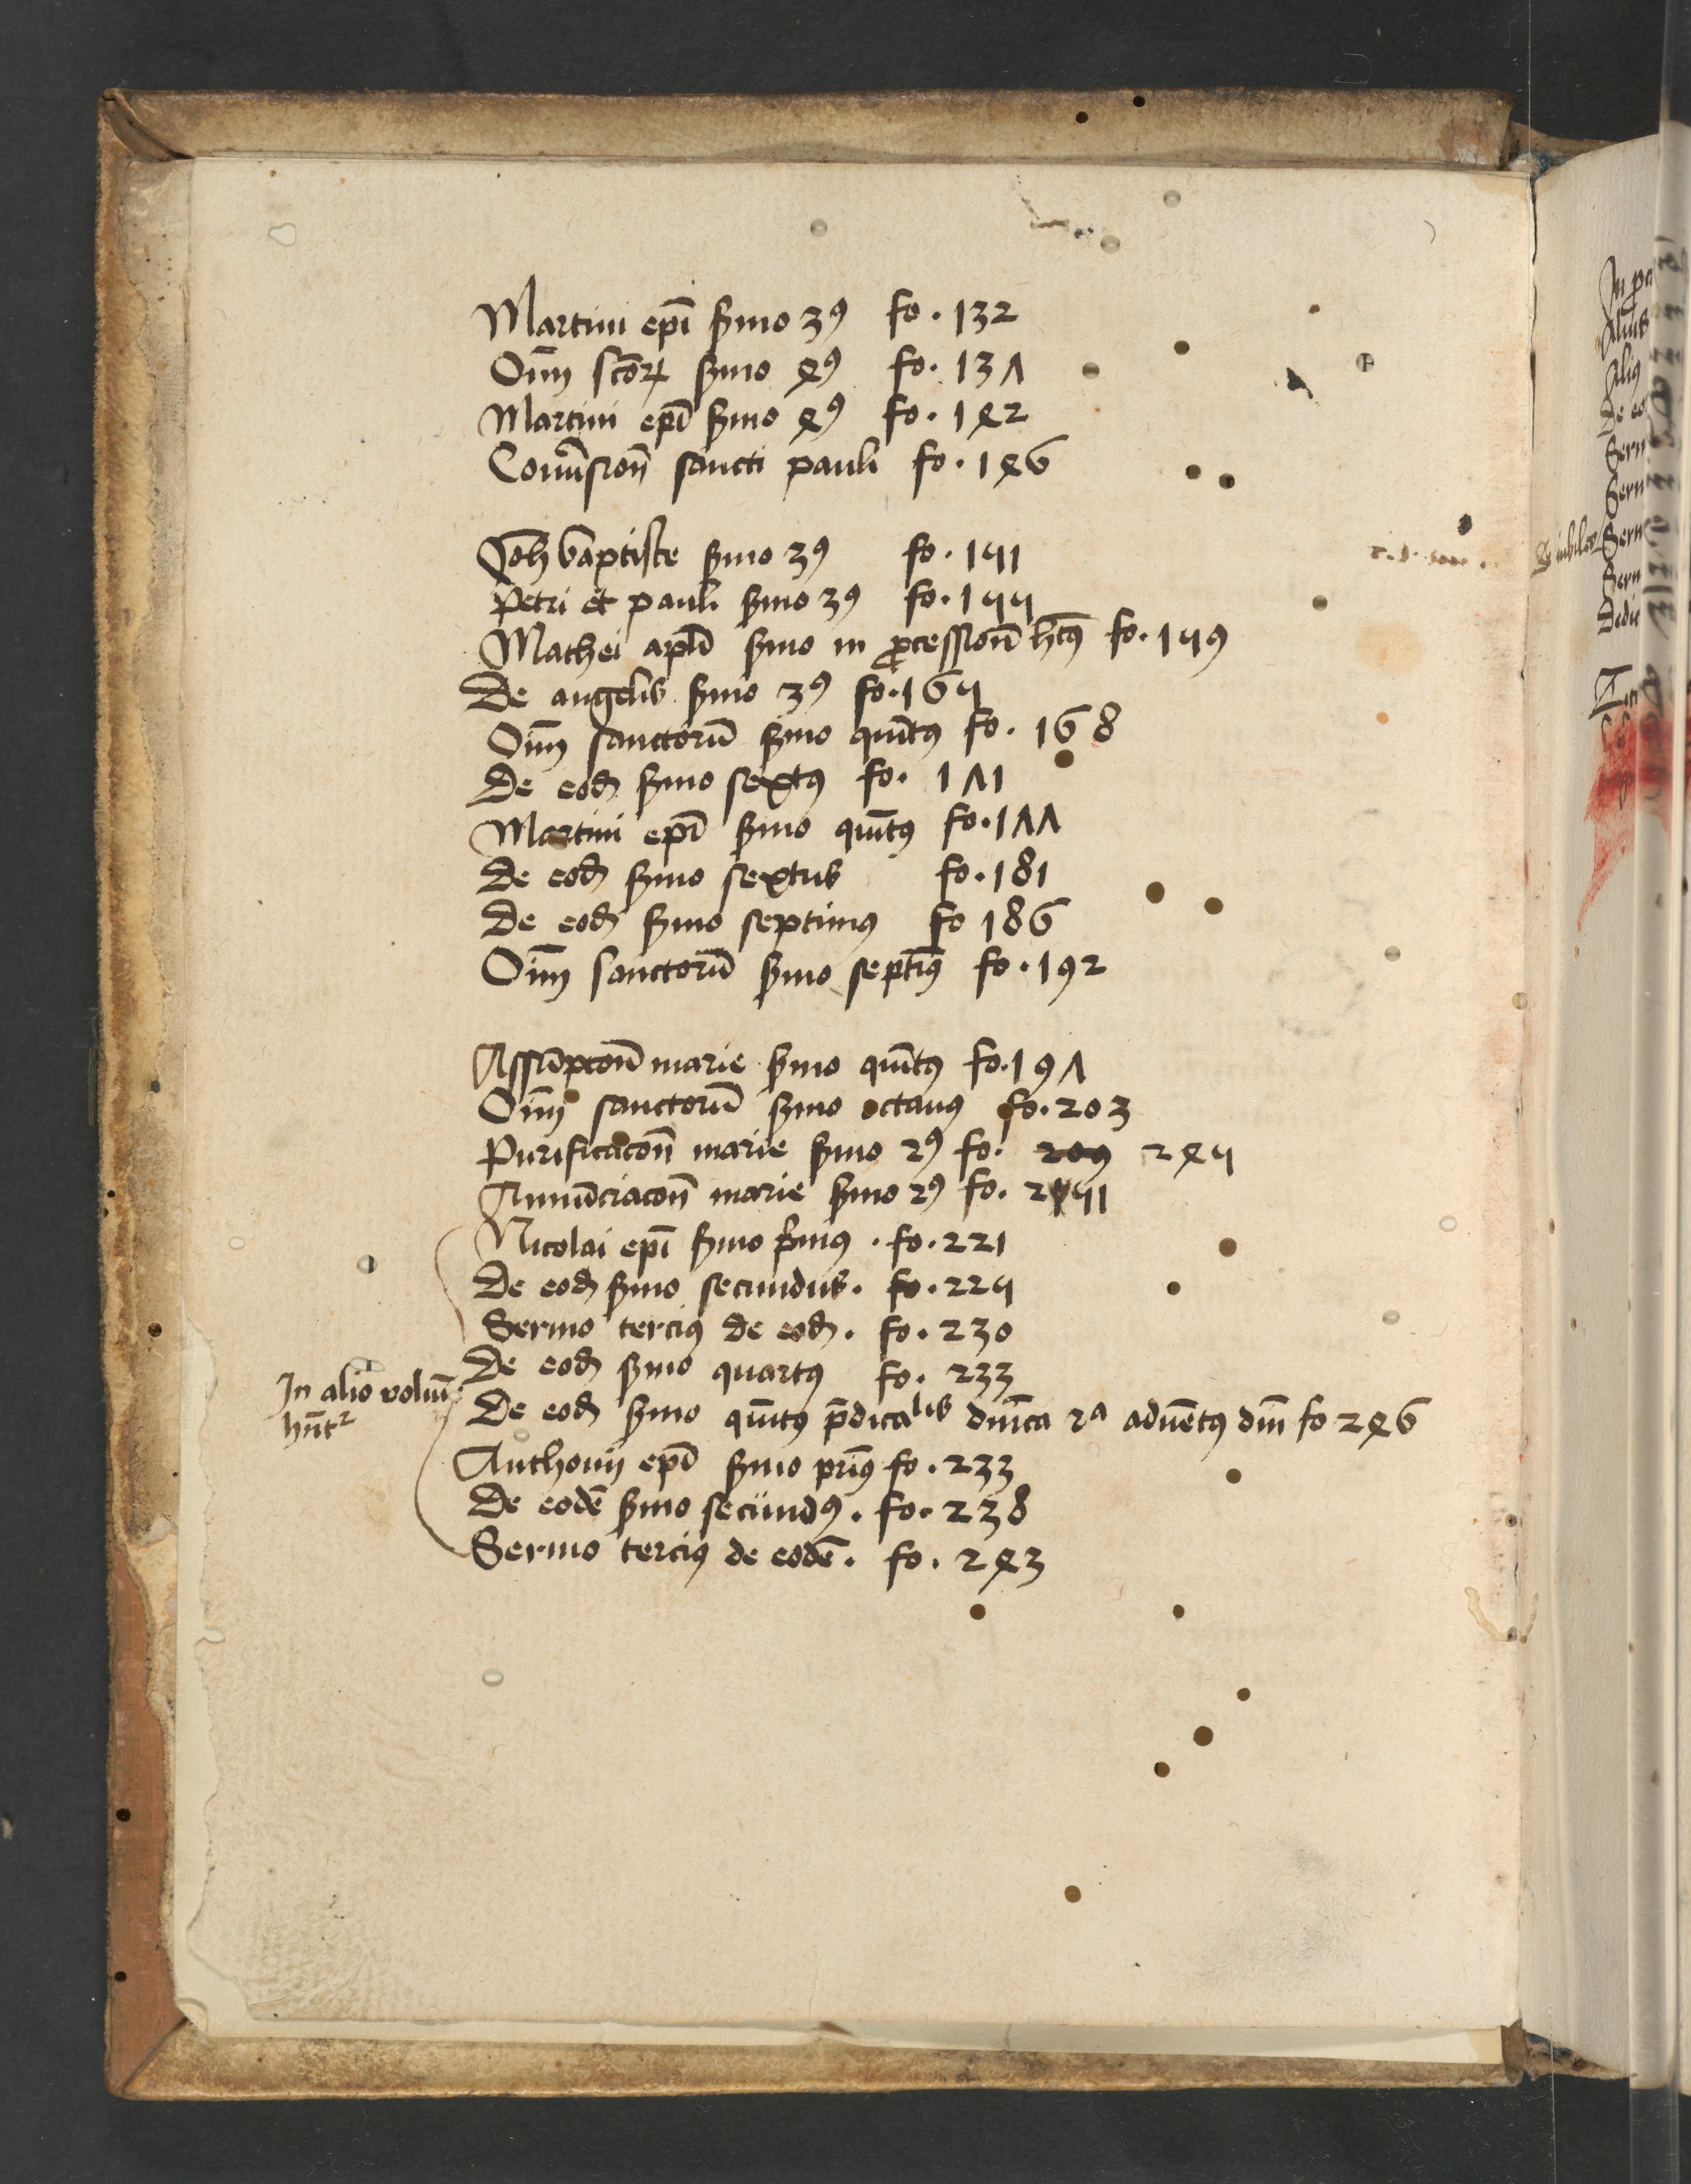 Martini ep̄i s̄mo 3ꝰ fo. 132
Oīm sc̄oꝝ s̄mo 4ꝰ fo. 137
Martini ep̄i s̄mo 4ꝰ fo. 142
Conu̓sion̄ sancti pauli fo. 146
Joh̄ baptiste s̄mo 3ꝰ fo. 151
Petri et pauli s̄mo 3ꝰ fo. 155
Mathei apl̄i s̄mo in p̄cession̄ h̄itꝰ fo. 159
De angelis s̄mo 3ꝰ fo. 165
Oīm sanctorū s̄mo quītꝰ fo. 168
De eod̄ s̄mo sextꝰ fo. 171
Martini ep̄i s̄mo quītꝰ fo. 177
De eod̄ s̄mo sextus fo. 181
De eod̄ s̄mo septimꝰ fo 186
Oīm sanctorū s̄mo septīꝰ fo. 192
Assūpcōn̄ marie s̄mo quītꝰ fo. 197
Oīm sanctorū s̄mo octauꝰ fo. 203
Purificacōn̄ marie s̄mo 2ꝰ fo. 209 245
Annūciacōn̄ marie s̄mo 2ꝰ fo. 251
Nicolai ep̄i s̄mo p̄imꝰ. fo. 221
De eod̄ s̄mo secundus. fo. 225
Sermo terciꝰ de eod̄. fo. 230
De eod̄ s̄mo quartꝰ fo. 233
In alio volum̄
hn̄tʳ
De eod̄ s̄mo quītꝰ p̄dicalis dn̄ica 2ᵃ aduētꝰ dn̄i fo 246
Anthonij ep̄i s̄mo prīꝰ fo. 233
De eodē s̄mo secundꝰ. fo. 238
Sermo terciꝰ de eodē. fo. 243